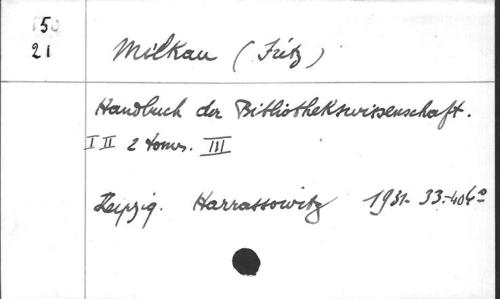 5
21
Milkau (Fritz)
Handbuch der Bibliothekswissenschaft.
I II 2 tomes. III
Leipzig. Harrassowitz 1931-33-40 4º